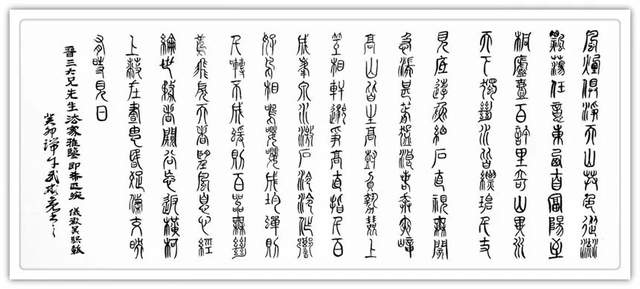 風煙俱淨天山共色從流
飄蕩任意東西自富陽至
桐廬壹百許里奇山異水
天下獨絕水皆縹碧千丈
見底游魚細石直視無礙
急湍甚箭猛浪若奔夾岸
高山皆生寒樹負勢競上
互相軒邈爭高直指千百
成峯泉水激石泠泠作響
好鳥相鳴嚶嚶成韻蟬則
千轉不窮猨則百叫無絕
鳶飛戾天者望峯息心經
綸世務者闚谷忘返橫柯
上蔽在晝猶昏疏條交映
有時見日
晉三六兄先生法家雅鑒即希 儀徵吳熙載
癸卯端午